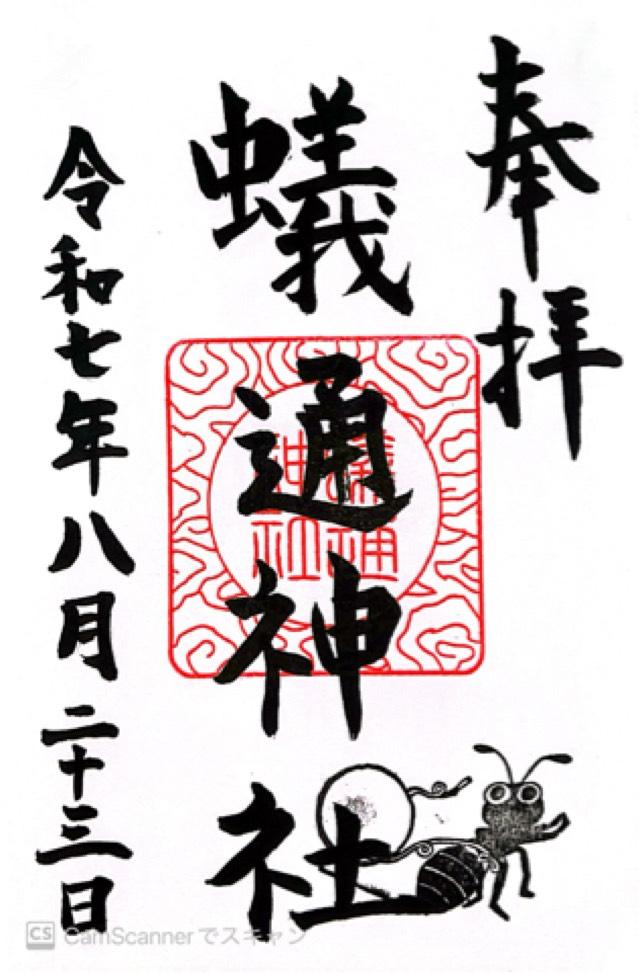 奉拝
蟻通神社
蟻通
神社
令和七年八月二十三日
CS CamScannerでスキャン